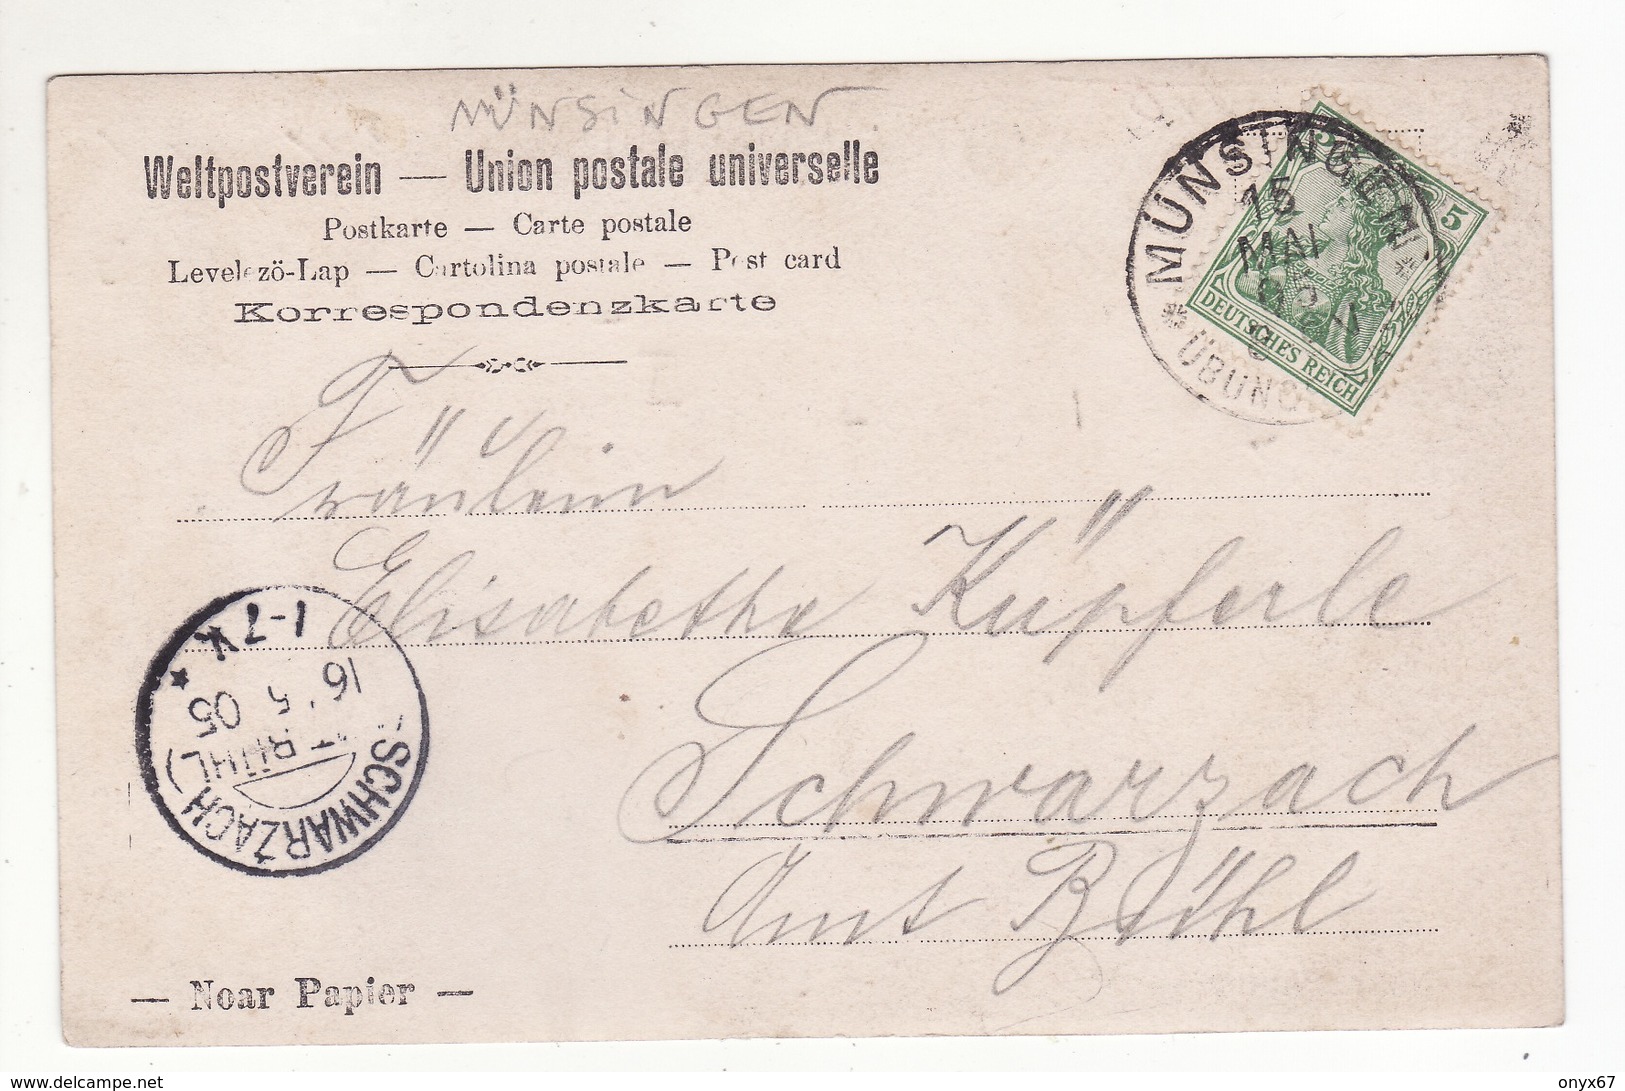 MÜNSINGEN
Weltpostverein — Union postale universelle
Postkarte — Carte postale
Levelező-Lap — Cartolina postale — Post card
Korrespondenzkarte
MÜNSINGEN
15
MAI
ÜBUNGS
5
DEUTSCHES REICH
Fräulein
Elisabetha Küpferle
Schwarzach
Amt Bühl
1-7 K
16.5.05
SCHWARZACH
(AMT BÜHL)
— Noar Papier —
www.delcampe.net
onyx67